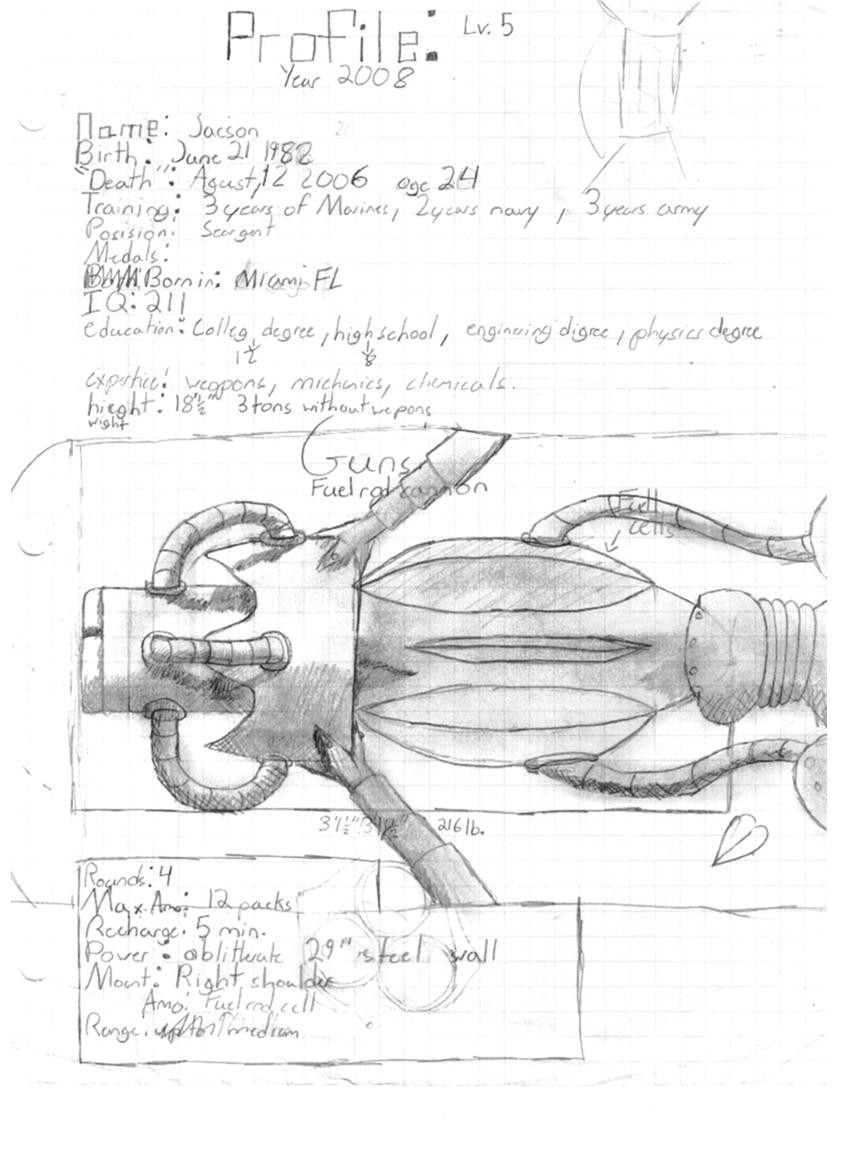 Profile: Lv. 5
Year 2008
Name: Jacson
Birth: June 21 1982
"Death": Agust, 12 2006 age 24
Training: 3 years of Marines, 2 years navy, 3 years army
Posision: Seargent
Medals:
Born in: Miami FL
IQ: 211
education: Colleg degree, high school, enginering digree, physics degree
expertice: weapons, michenics, chemicals.
hieght: 18'½" 3 tons without wepons
wight
Guns
Fuel rod cannon
Fuel
cells
3'1½" 216 lb.
Rounds: 4
Max. Amo: 12 packs
Recharge: 5 min.
Power: oblitwrate 29" steel wall
Mount: Right shoulder
Amo: Fuel rod cell
Range: medium